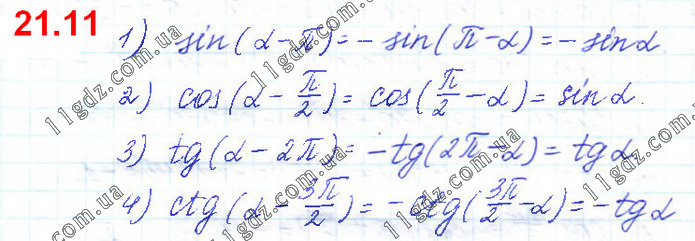 21.11
1) sin(α-π)=-sin(π-α)=-sinα
2) cos(α-π/2)=cos(π/2-α)=sinα.
3) tg(α-2π)=-tg(2π-α)=tgα.
4) ctg(α-3π/2)=-ctg(3π/2-α)=-tgα
11gdz.com.ua
11gdz.com.ua
11gdz.com.ua
11gdz.com.ua
11gdz.com.ua